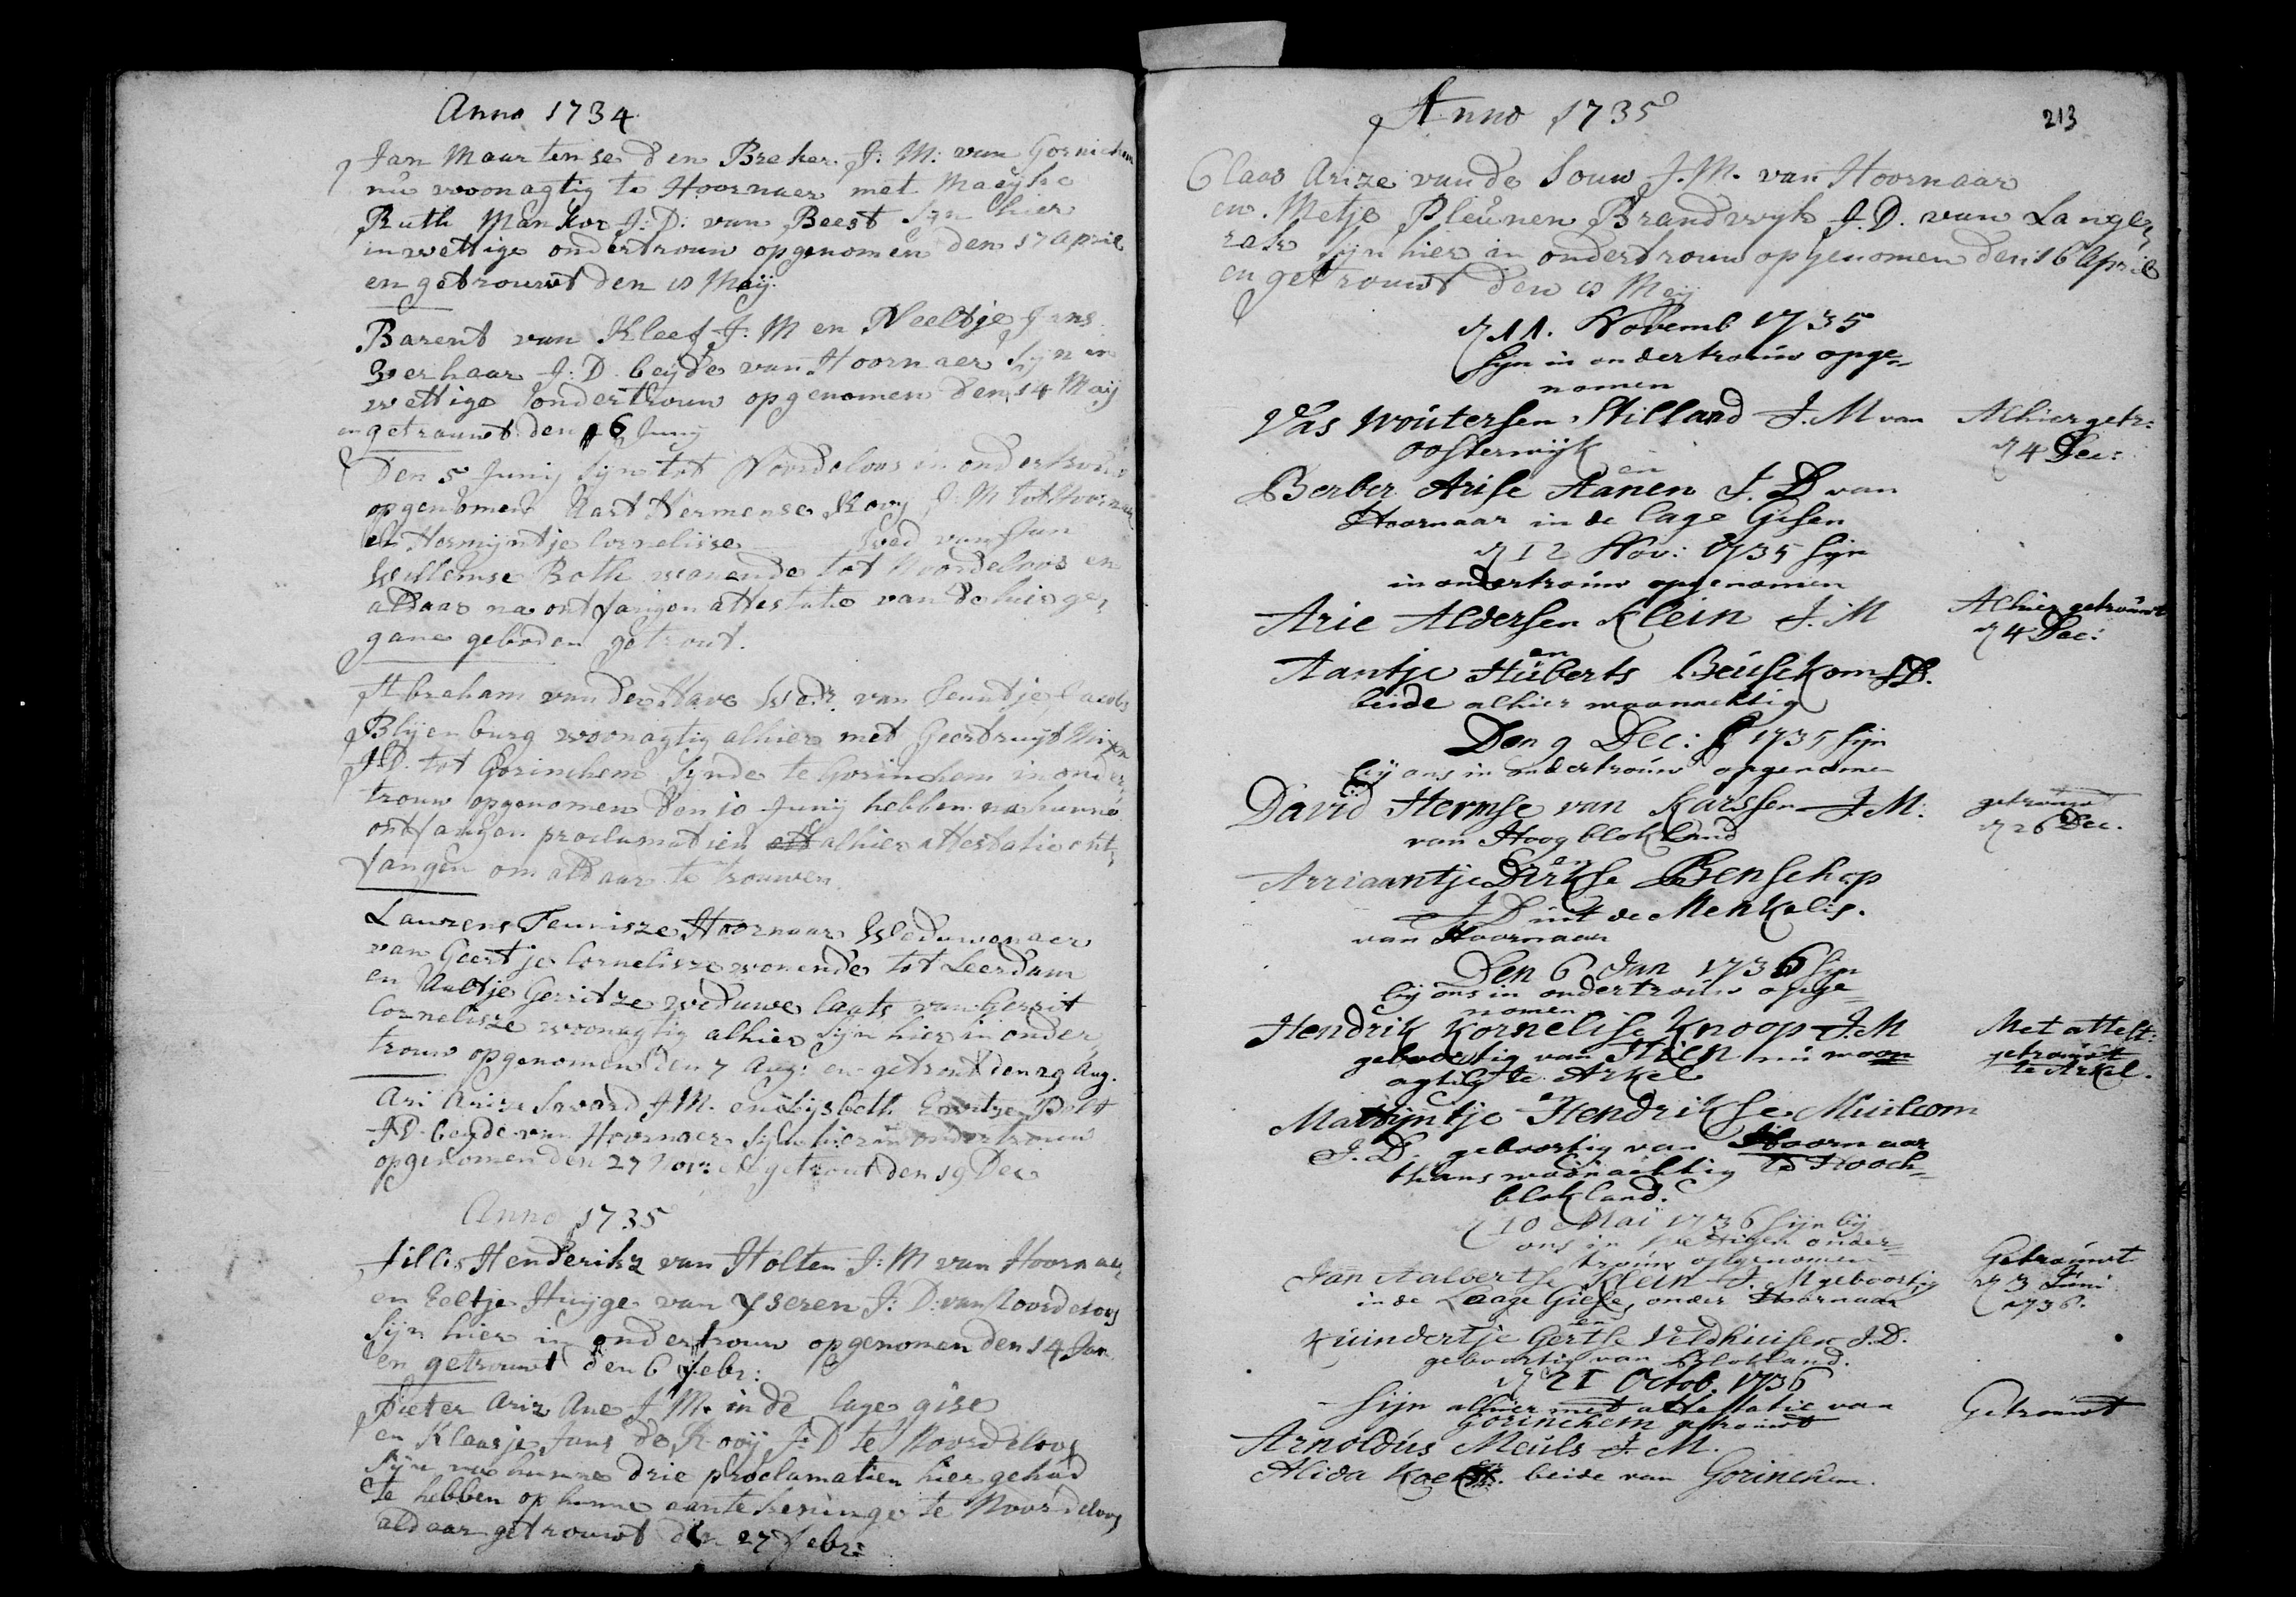 Anno 1734
Jan Maartense den Breker J: M: van Gornichem
nu woonagtig te Hoornaer met Maeijke
Ruth Mankor J: D: van Beest Syn hier
in wettige ondertrouw opgenomen den 17 April
en getrouwt den Meij
Barent van Kleef J: M en Neeltje Jans
Verhaar J: D. beijde van Hoornaer Syn in
wettige ondertrouw opgenomen den 14 Maij
en getrouwt den 6 Junij
Den 5 Junij Syn tot Noordeloos in ondertrouw
opgenomen Aart Hermense Kooy J: M tot
en Hermijntje Cornelisse Wed van Jan
Willemse Both wonende tot Noordeloos en
aldaar na ontfangen attestatie van de hier ge,
gane geboden getrout.
Abraham van der Have Wedr. van Jacobs
Blyenburg woonagtig alhier met Geertruijt
J. D. tot Gorinchem Synde te Gorinchem in onder,
trouw opgenomen den 10 Junij hebben na hunne
ontfangen proclamatien alhier attestatie ont,
fangen om aldaar te trouwen
Laurens Teunisze Hoornaar Weduwenaer
van Geertje Cornelisze wonende tot Leerdam
en Aaltje Gerritze weduwe laats van Gerrit
Cornelisze woonagtig alhier Syn hier in onder,
trouw opgenomen den 7 Aug: en getrout den 29 Aug.
Ari Arize J. M. en Lijsbeth
J D. beyde van Hoornaer Syn hier in ondertrouw
opgenomen den 27 Nov: en getrout den 19 Dec
Anno 1735
Jillis Henderikz van Holten J: M van Hoornaer
en Eeltje Huyge van Yseren J: D: van Noordeloos
Syn hier in ondertrouw opgenomen den 14 Jan
en getrouwt den 6 Febr:
Pieter Ariz Ane J M. in de lage gise
en Klaasje Jans de Rooij J: D te Noordeloos
Syn na hunne drie proclamatien hier gehad
te hebben op hunne aantekeninge te Noordeloos
aldaar getrouwt den 27 Febr:
Anno 1735
213
Claas Arize van de Souw J. M. van Hoornaar
en Metje Pleunen Brandwyk J. D. van Lange,
rak Syn hier in ondertrouw opgenomen den 16 April
en getrouwt den Meij
11. Novemb 1735
Sijn in ondertrouw opge=
nomen
Vas Woutersen Stilland J. M van
Oosterwijk
Alhier getr:
4 Dec:
en
Berber Arise Aanen J. D van
Hoornaar in de lage Gisen
12 Nov: 1735 sijn
in ondertrouw opgenomen
Arie Aldersen Klein J. M
Alhier getrouwt
4 Dec:
en
Aantje Huberts Beusekom J D.
beide alhier woonachtig
Den 9 Dec: 1735 sijn
bij ons in ondertrouw opgenomen
David Hermse van Karssen J. M:
van Hoog blokland
getrouwt
26 Dec.
en
Arriaantje Dirkse Benschop
J D uit de Menkelis.
van Hoornaar
Den 6 Jan 1736 sijn
bij ons in ondertrouw opge=
nomen
Hendrik Kornelisse Knoop J. M
geboortig van nu woon
agtig te Arkel
Met attest:
getrouwt
te Arkel.
en
Martijntje Hendrikse Muilwom
J. D. geboortig van Hoornaar
thans woonachtig te Hooch=
blokland.
10 Mai 1736 sijn bij
ons in wettigen onder=
trouw opgenomen
Jan Aalbertse Klein J. M geboortig
in de Laage Giese, onder Hoornaar
Getrouwt
3 Juni
1736.
en
Kuindertje Gertse Veldhuisen J. D.
geboortig van Blokland.
21 Octob. 1736
sijn alhier met attestatie van
Gorinchem getrouwt
Getrouwt
Arnoldus Meuls J. M.
Alida beide van Gorinchem.